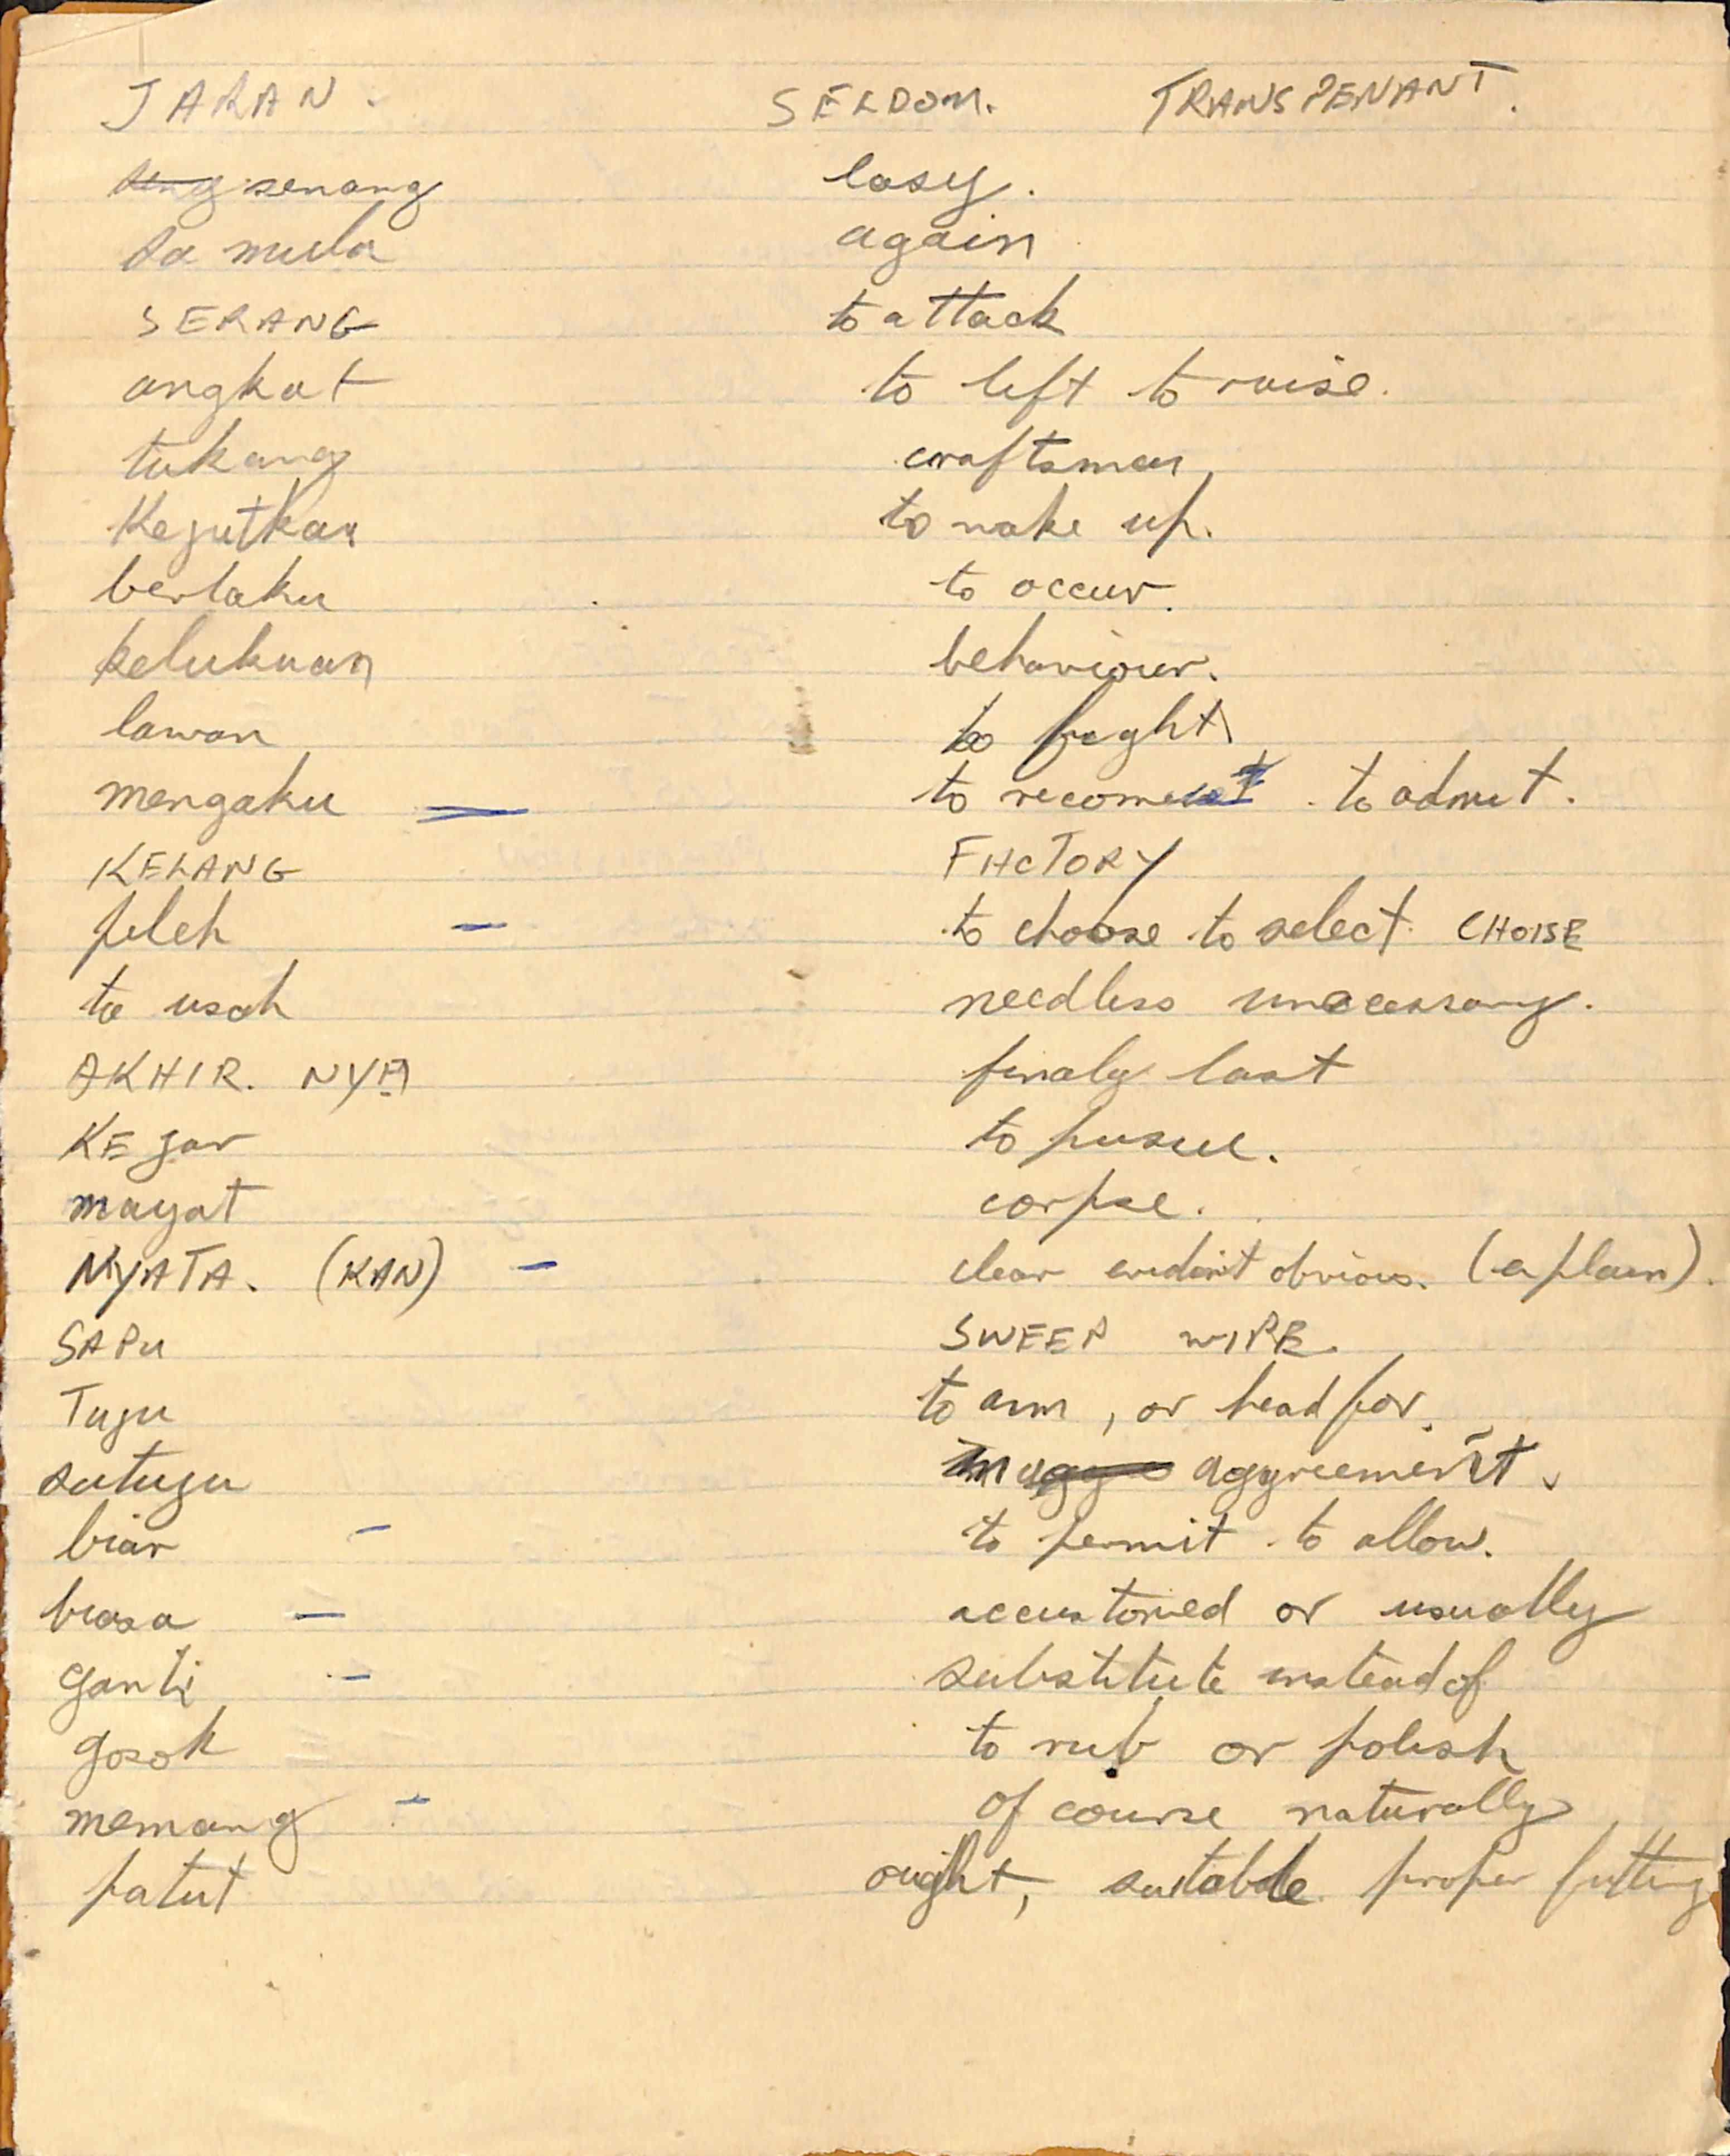 JARAN. SELDOM. TRANSPENANT.
senang easy.
sa mula again
SERANG to attack
angkat to left to raise.
tukang craftsman,
Kejutkan to wake up.
berlaku to occur.
kelukuan behaviour.
lawan to fight
mengaku = to . to admit.
KELANG FACTORY
pileh - to choose to select. CHOISE
ta usah needless unecessary.
AKHIR. NYA finaly last
KEjar to pusue.
mayat corpse.
NYATA. (KAN) - clear evident obvious. (explain).
SAPU SWEEP WIPE.
Tuju to aim, or head for.
satuju aggreement.
biar - to permit to allow.
biasa - accustomed or usually
ganti - substitute instead of
gosok to rub or polish
memang - of course naturally
patut ought, suitable proper fitting